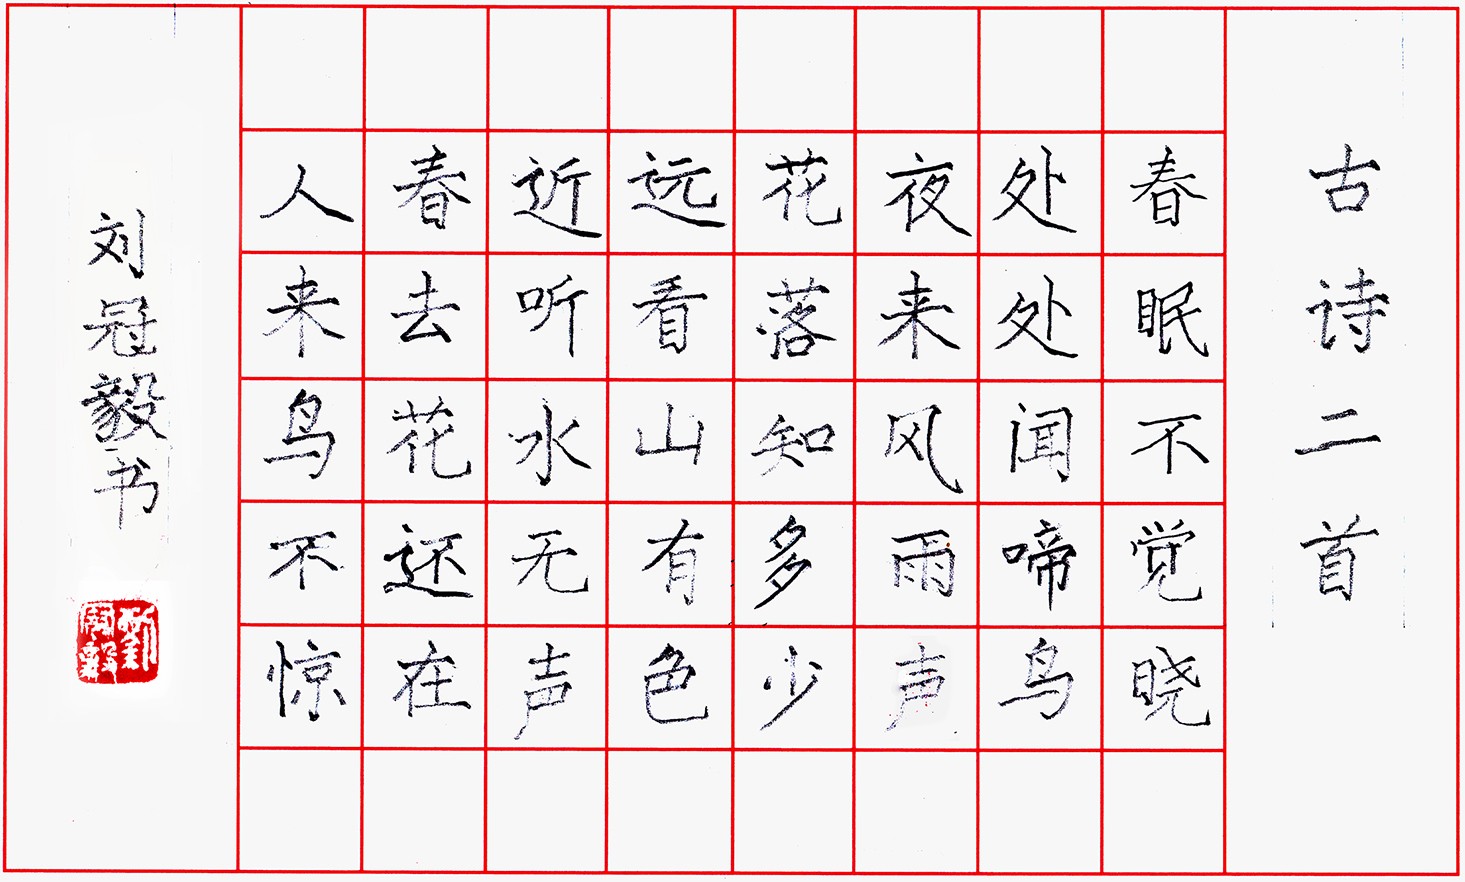 古诗二首
春眠不觉晓
处处闻啼鸟
夜来风雨声
花落知多少
远看山有色
近听水无声
春去花还在
人来鸟不惊
刘冠毅书
劉冠毅